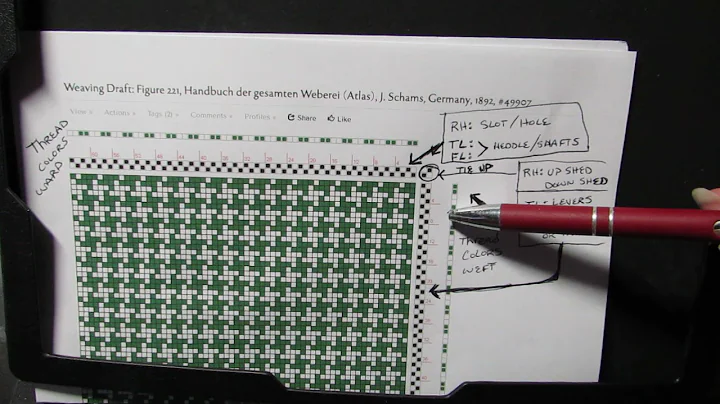 Weaving Draft: Figure 221, Handbuch der gesamten Weberei (Atlas), J. Schams, Germany, 1892, #49907
View Actions Tags (2) Comments Profiles Share Like
THREAD
COLORS
WARP
RH: SLOT/HOLE
TL: > HEDDLE/SHAFTS
FL:
TIE UP
RH: UP SHED
DOWN SHED
TL: LEVERS
OR
Thread
COLORS
WEFT